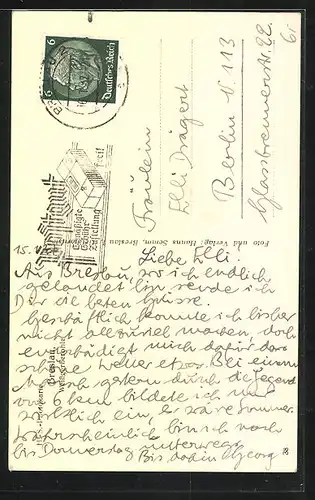 6 Deutsches Reich 6
Ermäßigte Gebühr
Zustellung frei!
Fräulein
Elli Drägert
Berlin N 113
Foto und Verlag: Hanns Semm, Breslau
15. VI.
Liebe Elli!
Aus Breslau, wo ich endlich
gelandet bin, sende ich
Dir die besten Grüsse.
Geschäftlich konnte ich bisher
nicht allzuviel machen, doch
entschädigt mich dafür das
schöne Wetter etwas. Bei einem
Marsch gestern durch die Gegend
von 6 km bildete ich mir
wirklich ein, es wäre Sommer.
Wahrscheinlich bin ich noch
bis Donnerstag unterwegs
Bis dahin Georg
Breslau,